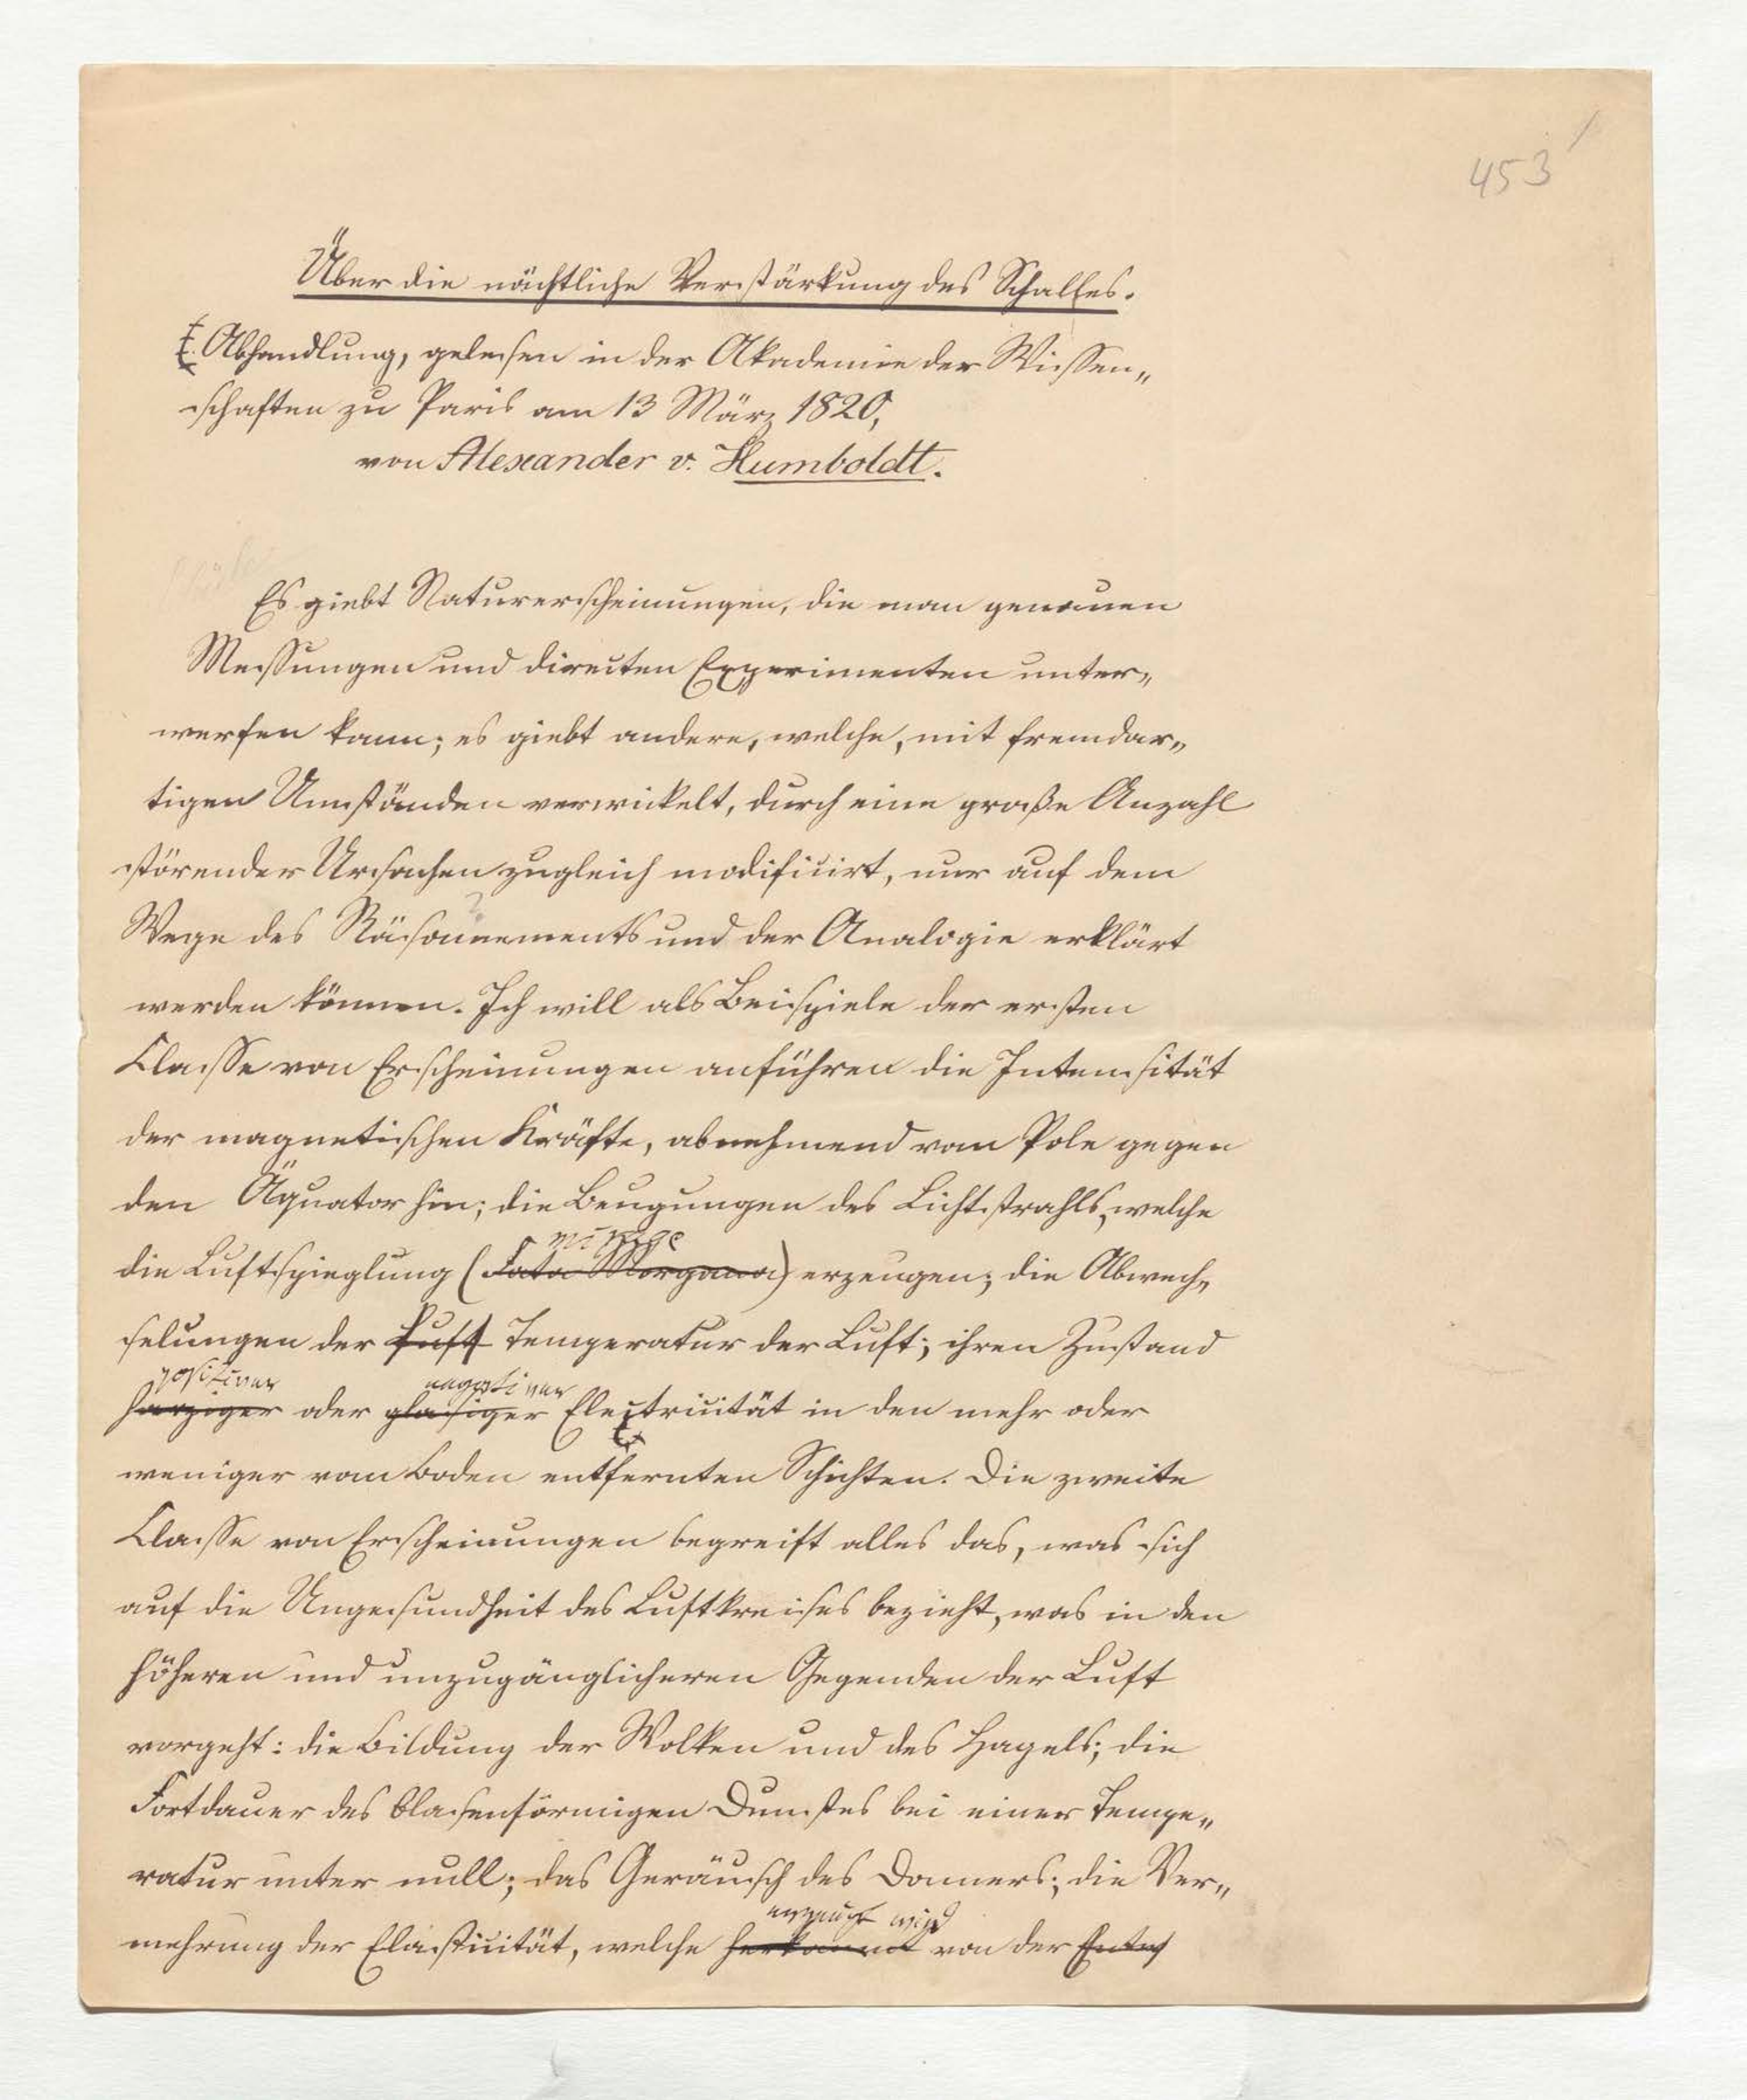 453
Über die nächtliche Verstärkung des Schalles.
Abhandlung, gelesen in der Akademie der Wissen„
schaften zu Paris am 13 März 1820,
von Alexander v. Humboldt.
Es giebt Naturerscheinungen, die man genauen
Messungen und directen Experimenten unter„
werfen kann; es giebt andere, welche, mit fremdar„
tigen Umständen verwickelt, durch eine große Anzahl
störender Ursachen zugleich modificirt, nur auf dem
Wege des Räsonnements und der Analogie erklärt
werden können. Ich will als Beispiele der ersten
Classe von Erscheinungen anführen die Intensität
der magnetischen Kräfte, abnehmend vom Pole gegen
den Äquator hin; die Beugungen des Lichtstrahls, welche
mirage
die Luftspieglung (Fata Morgana) erzeugen; die Abwech„
selungen der Luft Temperatur der Luft; ihren Zustand
positiver negativer
harziger oder glasiger Electricität in den mehr oder
weniger vom Boden entfernten Schichten. Die zweite
Classe von Erscheinungen begreift alles das, was sich
auf die Ungesundheit des Luftkreises bezieht, was in den
höheren und unzugänglicheren Gegenden der Luft
vorgeht: die Bildung der Wolken und des Hagels; die
Fortdauer des blasenförmigen Dunstes bei einer Tempe„
ratur unter null; das Geräusch des Donners; die Ver„
erzeugt wird
mehrung der Elasticität, welche herkommt von der